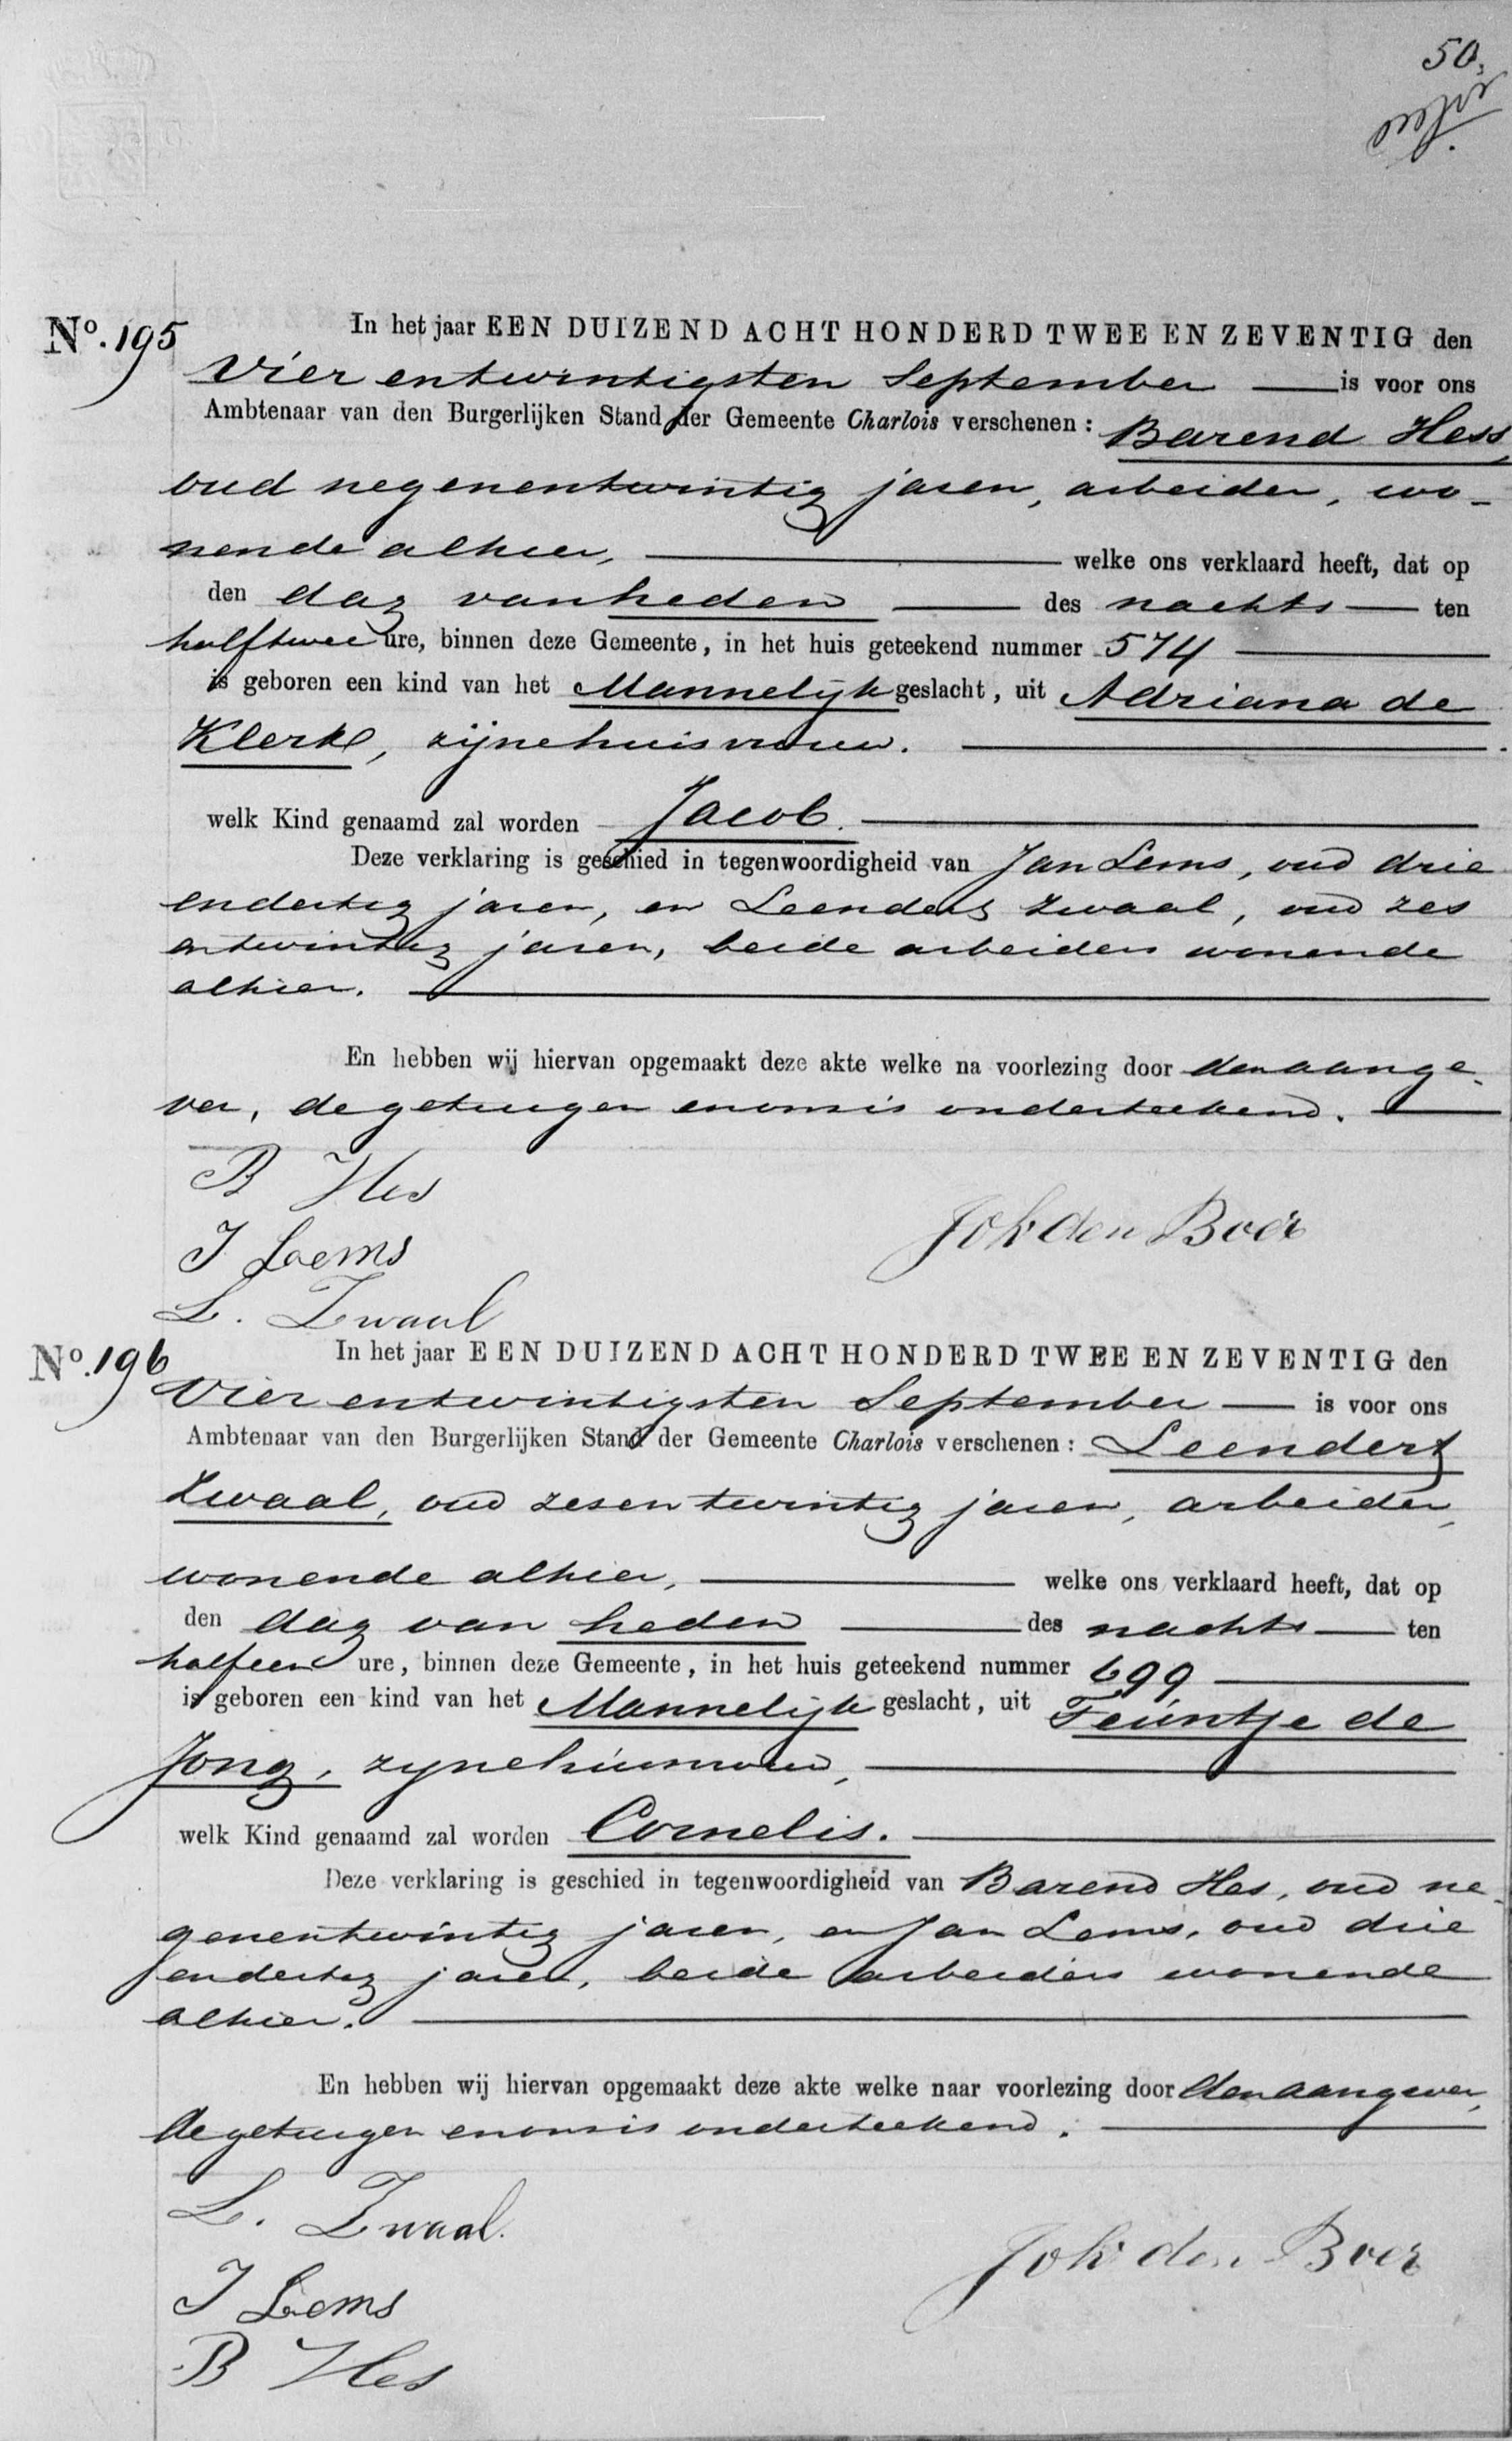 50.
No. 195 In het jaar EEN DUIZEND ACHT HONDERD TWEE EN ZEVENTIG den
Vier entwintigsten September is voor ons
Ambtenaar van den Burgerlijken Stand der Gemeente Charlois verschenen: Barend Hess,
oud negenentwintig jaren, arbeider, wo-
nende alhier, welke ons verklaard heeft, dat op
den dag van heden des nachts ten
half twee ure, binnen deze Gemeente, in het huis geteekend nummer 574
is geboren een kind van het Mannelijk geslacht, uit Adriana de
Klerk, zijne huisvrouw.
welk Kind genaamd zal worden Jacob.
Deze verklaring is geschied in tegenwoordigheid van Jan Lems, oud drie
endertig jaren, en Leendert Zwaal, oud zes
entwintig jaren, beide arbeiders wonende
alhier.
En hebben wij hiervan opgemaakt deze akte welke na voorlezing door den aange-
ver, de getuigen en ons is onderteekend.
B Hes
J Lems
Joh den Boer
L. Zwaal
No. 196 In het jaar EEN DUIZEND ACHT HONDERD TWEE EN ZEVENTIG den
Vier entwintigsten September is voor ons
Ambtenaar van den Burgerlijken Stand der Gemeente Charlois verschenen: Leendert
Zwaal, oud zesentwintig jaren, arbeider,
wonende alhier, welke ons verklaard heeft, dat op
den dag van heden des nachts ten
half een ure, binnen deze Gemeente, in het huis geteekend nummer 699
is geboren een kind van het Mannelijk geslacht, uit Teuntje de
Jong, zijne huisvrouw,
welk Kind genaamd zal worden Cornelis.
Deze verklaring is geschied in tegenwoordigheid van Barend Hes, oud ne-
genentwintig jaren, en Jan Lems, oud drie
endertig jaren, beide arbeiders wonende
alhier.
En hebben wij hiervan opgemaakt deze akte welke naar voorlezing door den aangever,
de getuigen en ons is onderteekend.
L. Zwaal.
J Lems
Joh den Boer
B Hes